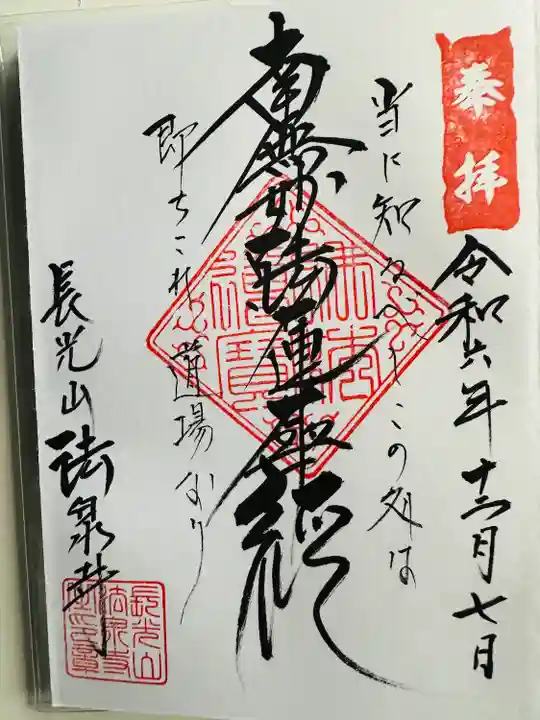 奉拝
令和六年十二月七日
当に知るべしこの処は
南無妙法蓮華経
即ちこれ道場なり
長光山 法泉寺